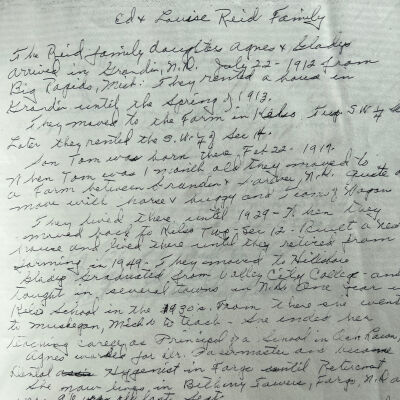 Ed & Louise Reid Family
The Reid family daughter Agnes & Gladys
arrived in Grandin, N.D. July 22 - 1912 from
Big Rapids, Mich. They rented a house in
Grandin until the Spring of 1913.
They moved to the Farm in Kelso, Twp. S.W. 1/4
Later they rented the S.W. 1/4 of Sec 14.
Son Tom was born there, Feb 22 - 1919.
When Tom was 1 month old they moved to
a Farm between Grandin & N.D. Quite a
move with horse & buggy and Team & Wagon
They lived there until 1929 - When they
moved back to Kelso Twp - Sec 12 - Built a new
house and lived there until they retired from
farming in 1949 - They moved to Hillsboro
Gladys graduated from Valley City College - and
taught in several towns in N.D. One year in
School in the 1930's. From there she went
to Muskegon, Mich to teach - She ended her
teaching career as Principal of a School in
Agnes worked for Dr. and became
Dental Hygenist in Fargo until Retired
She now lives in Bethany Towers, Fargo, N.D.
was last Sept.